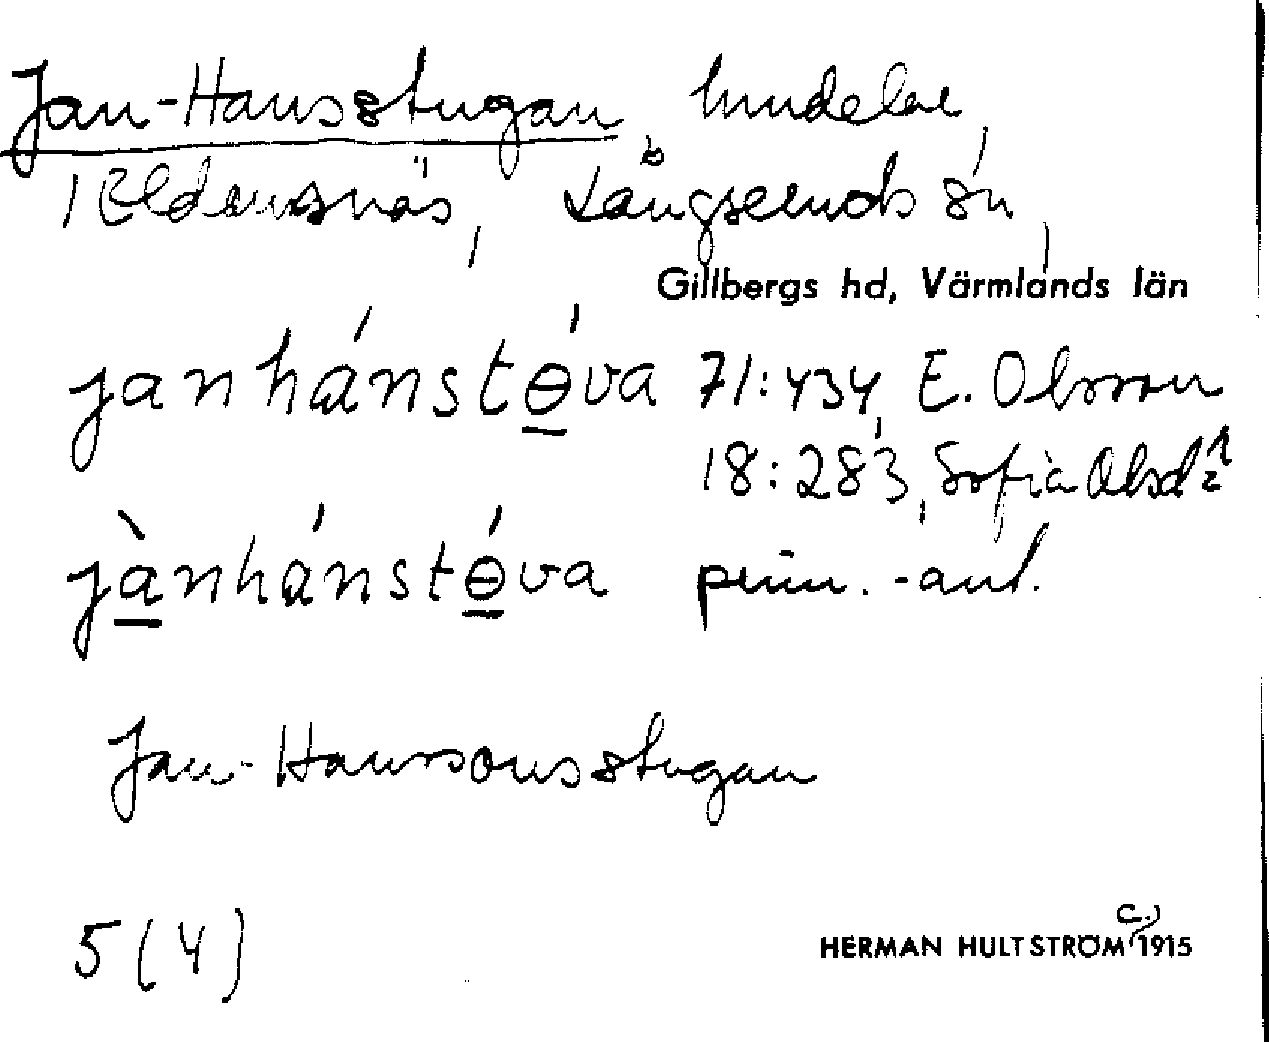 Jan-Hansstugan, hmdelar,
1 Eldansnäs, Långseruds sn,
Gillbergs hd, Värmlands län
janhánstө́va 71:434, E. Olsson
18:283, Sofia Olsd:r
jànhánstө́va prim. -ant.
Jan-Hanssonsstugan
5 (4)
HERMAN HULTSTRÖM c. 1915